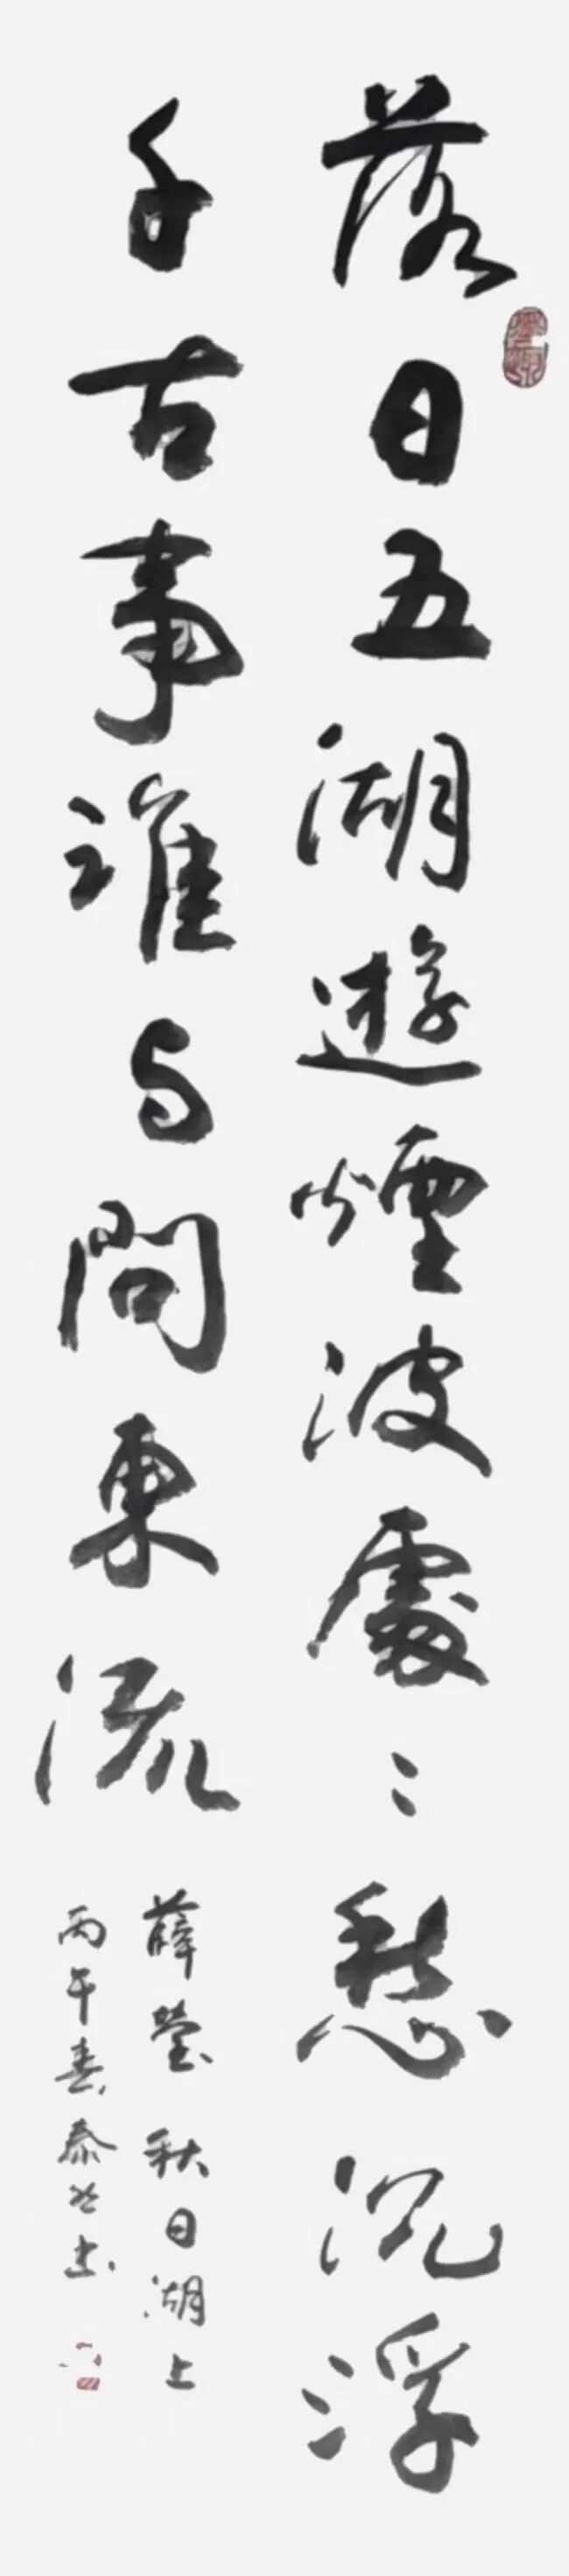 落日五湖遊煙波處〻愁沉浮
千古事誰与問東流
薛瑩秋日湖上
丙午春泰书